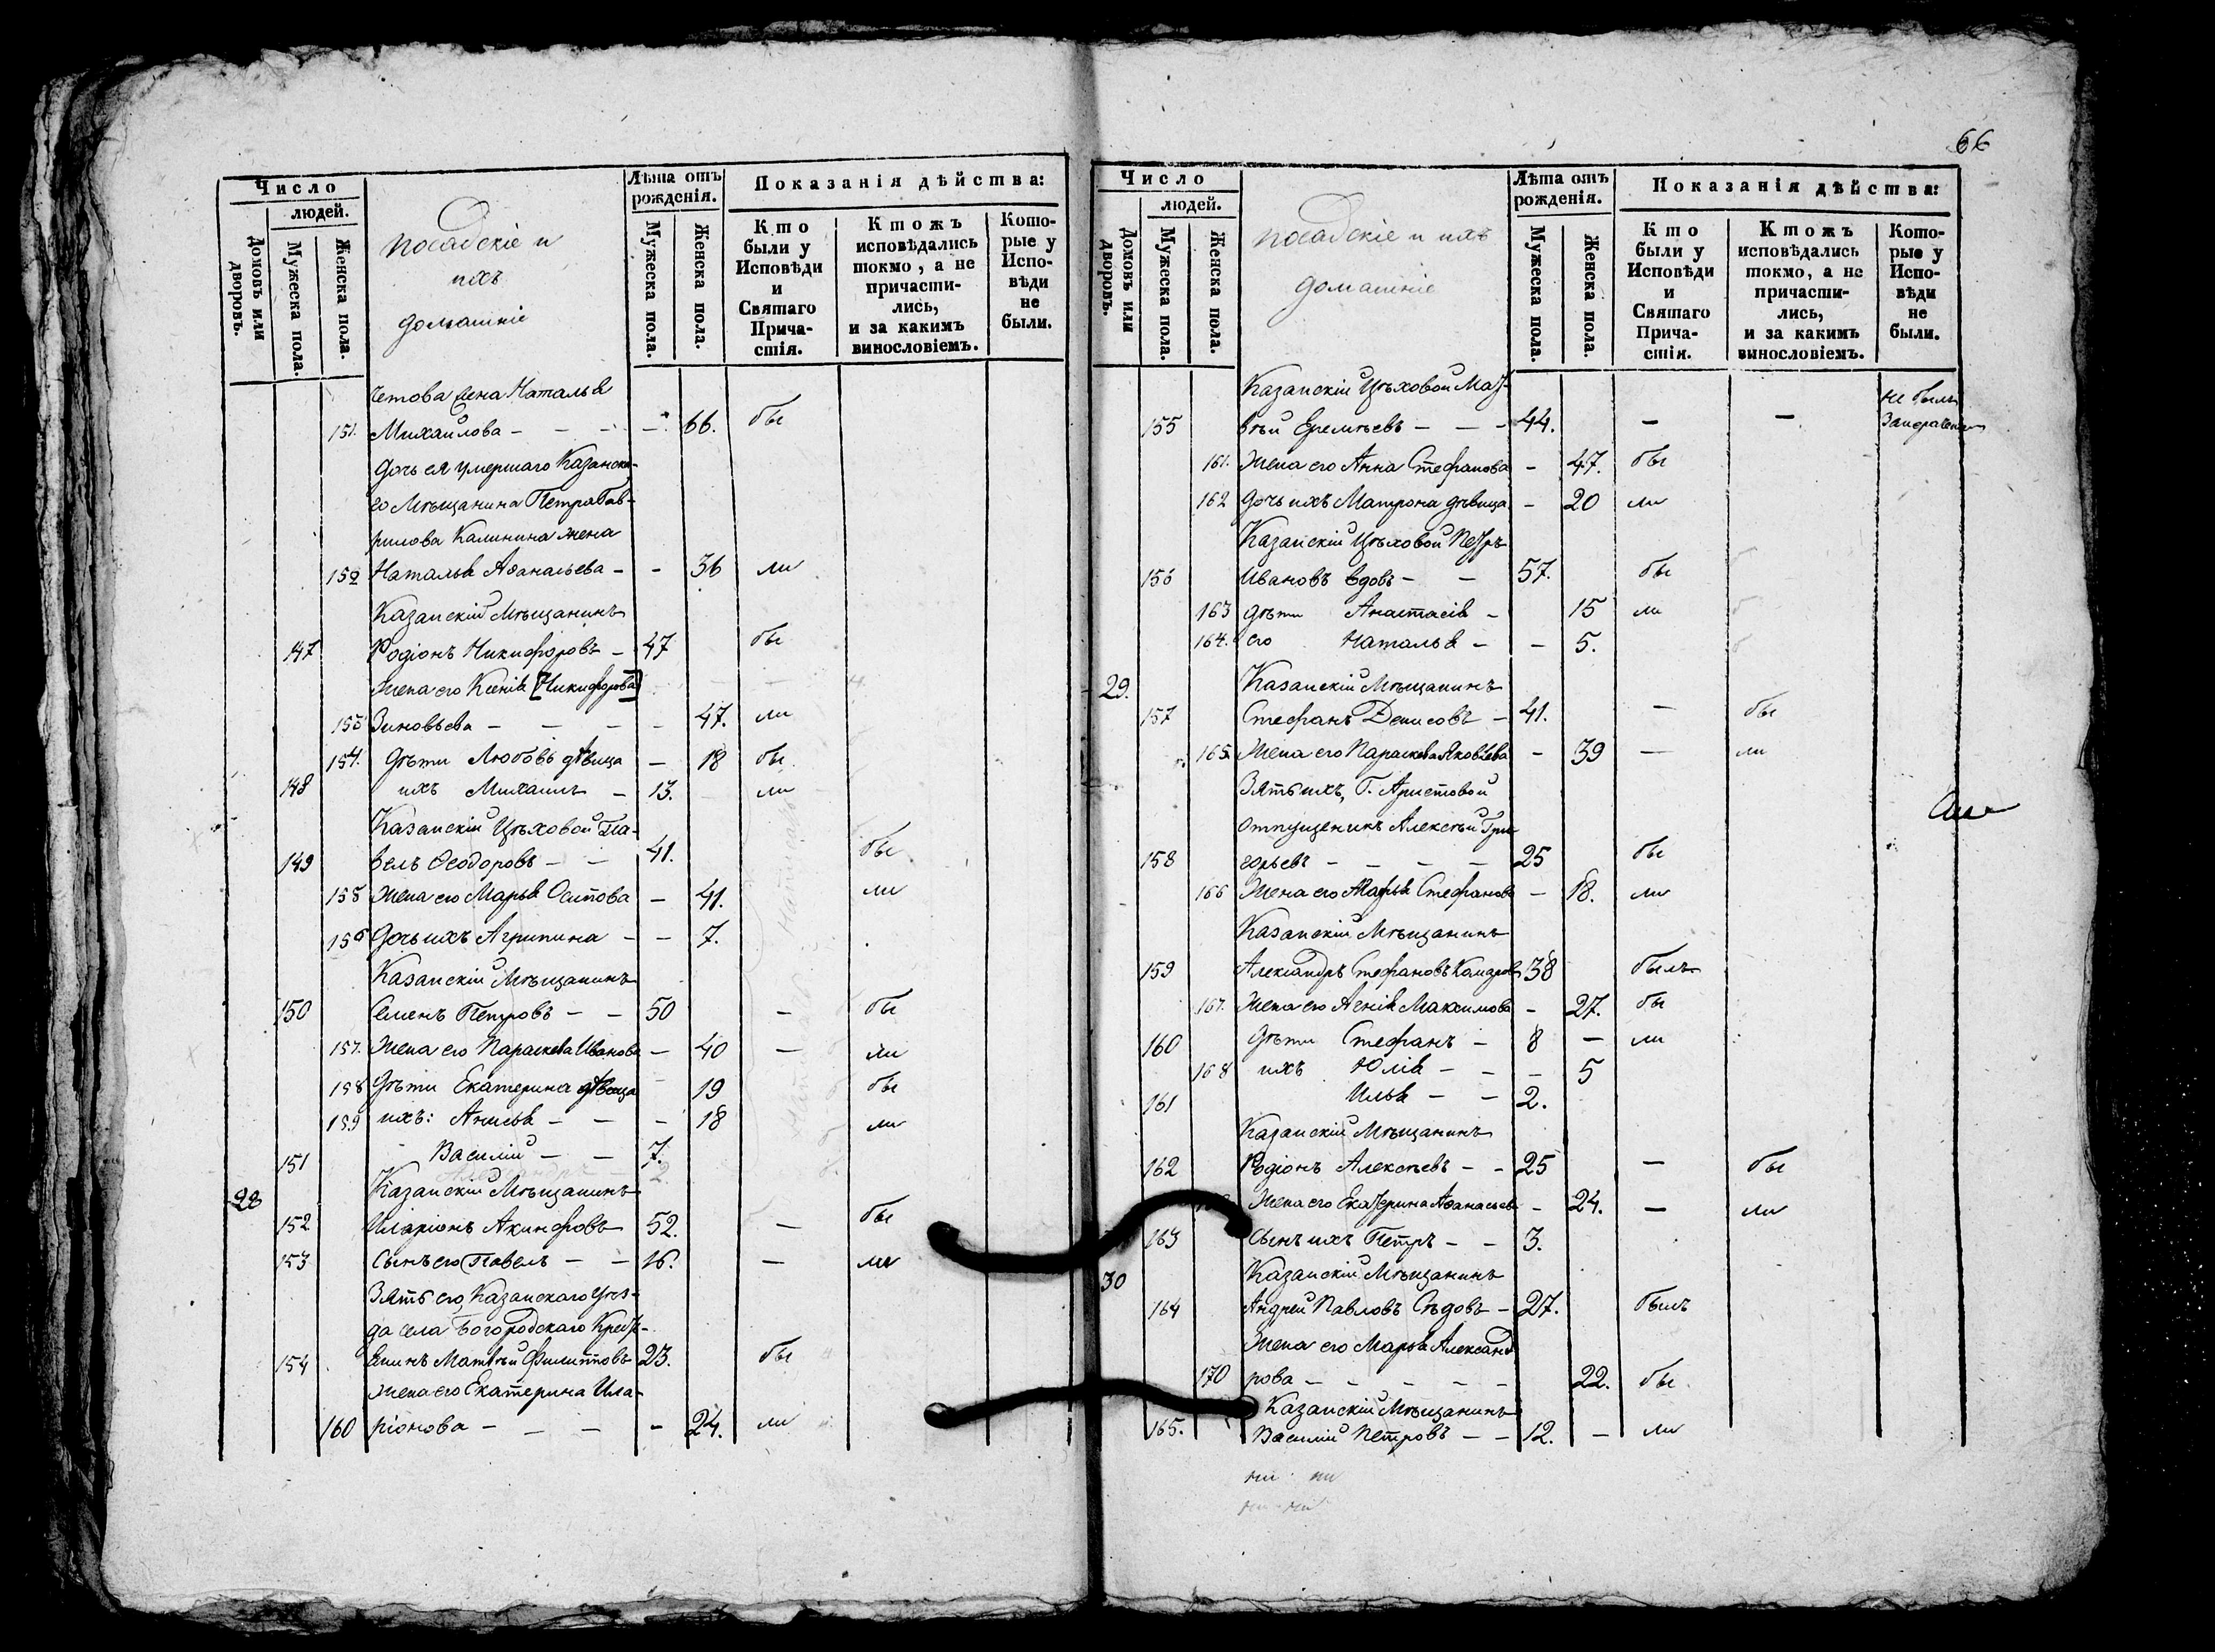 66
Число
людей.
Домовъ или дворовъ.
Мужеска пола.
Женска пола.
посадскіе и
ихъ
домашніе
Лѣта отъ рожденія.
Мужеска пола.
Женска пола.
Показанія дѣйства:
Кто были у Исповѣди и Святаго Прича-стія.
Ктожъ исповѣдались токмо, а не причасти-лись, и за какимъ винословіемъ.
Кото-рые у Испо-вѣди не были.
жена Наталья
151. Михайлова - - - - 66. бы
Дочь ея умершаго Казанска-
го Мѣщанина Петра Гав-
рилова Калинина жена
152 Наталья Аѳанасьева - - 36 ли
Казанскій Мѣщанинъ
147 Родіонъ Никифоровъ - 47 бы
Жена его Ксенія [Никифорова]
153 Зиновьева - - - - 47. ли
154. Дѣти Любовь дѣвица - 18 бы
148 ихъ Михаилъ - 13. ли
Казанскій Цѣховой Па-
149 велъ Ѳеодоровъ - - 41. бы
155 Жена его Марья Осипова - 41. ли
156 Дочь ихъ Агрипина - - 7.
Казанскій Мѣщанинъ
150 Семенъ Петровъ - - 50 - бы
157. Жена его Параскева Иванова - 40 - ли
158 Дѣти Екатерина дѣвица 19 бы
159 ихъ: Анисья - - - 18 ли
151 Василій - - 7.
28 Казанскій Мѣщанинъ
152 Иларіонъ Акинфовъ 52. - бы
153 Сынъ его Павелъ - - 16. - ли
Зять его, Казанскаго Уѣз-
да села Богородскаго Крест-
154 янинъ Матвѣй Филипповъ 23. бы
жена его Екатерина Ила-
160 ріонова - - - - 24. ли
Число
людей.
Домовъ или дворовъ.
Мужеска пола.
Женска пола.
посадскіе и ихъ
домашніе
Лѣта отъ рожденія.
Мужеска пола.
Женска пола.
Показанія дѣйства:
Кто были у Исповѣди и Святаго Прича-стія.
Ктожъ исповѣдались токмо, а не причасти-лись, и за какимъ винословіемъ.
Кото-рые у Испо-вѣди не были.
Казанскій Цѣховой Мат- не былъ
155 вѣй Еремѣевъ - - - 44. - -
161. Жена его Анна Стефанова - 47. бы
162 Дочь ихъ Матрона дѣвица - 20 ли
Казанскій Цѣховой Петръ
156 Ивановъ вдовъ - - 57. бы
163 дѣти Анастасія - 15 ли
164. его Наталья - - 5.
29. Казанскій Мѣщанинъ
157 Стефанъ Денисовъ - 41. - бы
165 Жена его Параскева Яковлева - 39 - ли
Зять ихъ, Г. Аристовой
отпущеникъ Алексѣй Гри-
158 горьевъ - - - - 25 бы
166 Жена его Марья Стефанова - 18. ли
Казанскій Мѣщанинъ
159 Александръ Стефановъ 38 былъ
167. Жена его Агнія Максимова - 27. бы
160 Дѣти Стефанъ - 8 - ли
168 ихъ Юлія - - - 5
161 Илья - - 2.
Казанскій Мѣщанинъ
162 Родіонъ Алексѣевъ - - 25 - бы
Жена его Екатерина Аѳанасьева - 24. - ли
163 Сынъ ихъ Петръ - - 3.
30 Казанскій Мѣщанинъ
164 Андрей Павловъ Сѣдовъ - 27. былъ
Жена его Марья Александ
170 рова - - - - - 22. бы
Казанскій Мѣщанинъ
165. Василій Петровъ - - 12. - ли